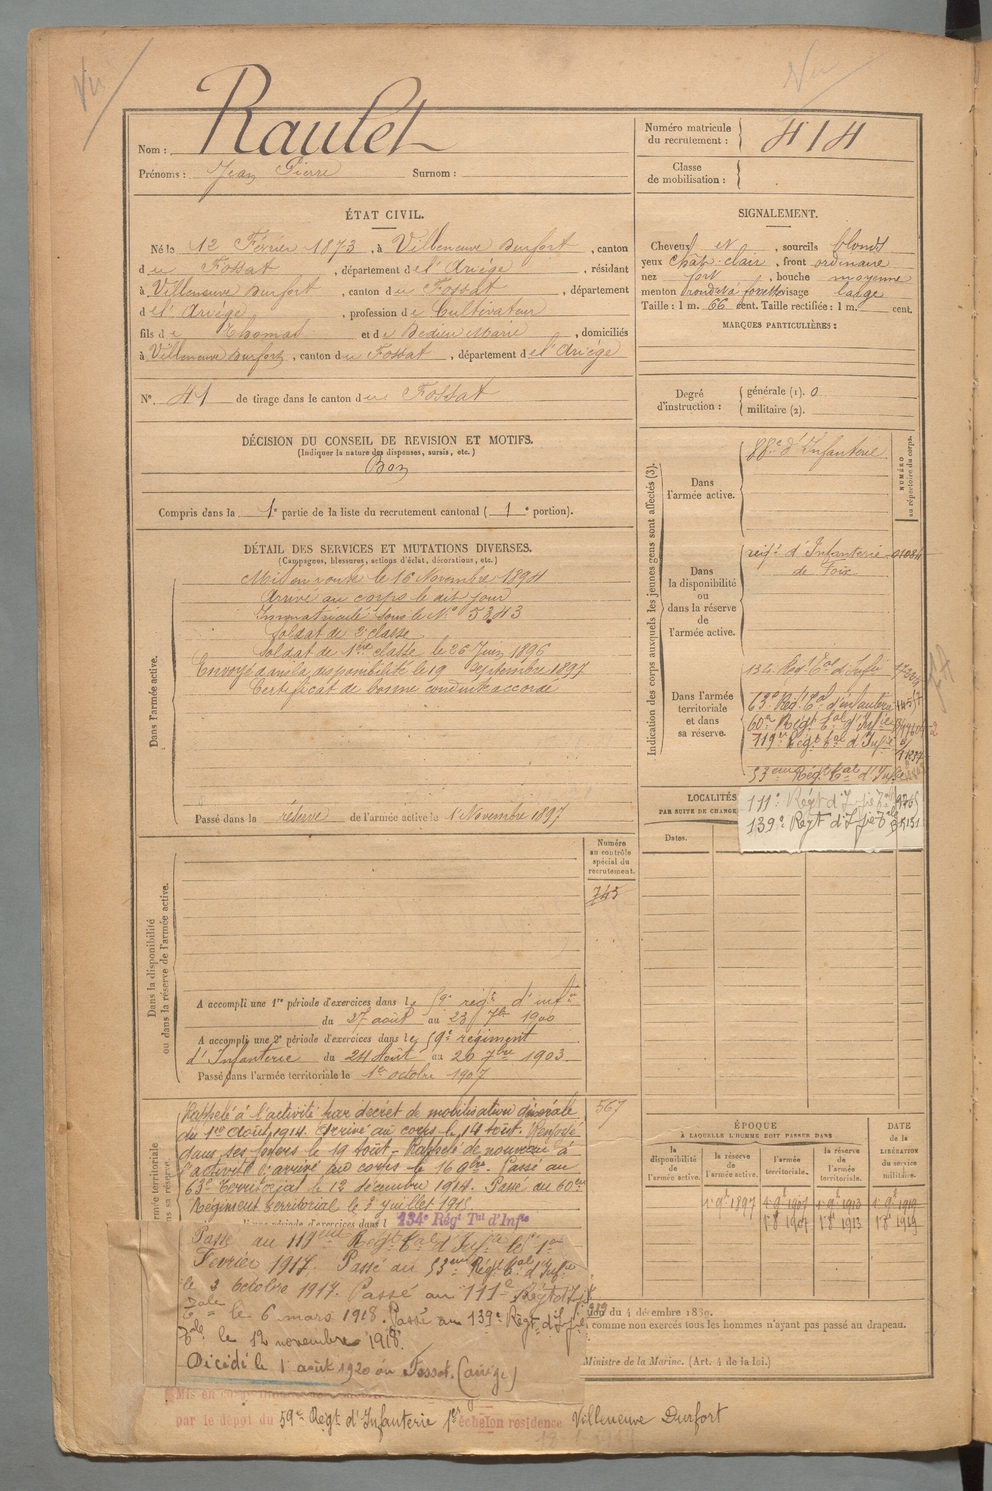 Vu
Vu
Nom : Raulet
Prénoms : Jean Pierre Surnom :
Numéro matricule du recrutement : 414
Classe de mobilisation :
ÉTAT CIVIL.
Né le 12 Février 1873, à Villeneuve Durfort, canton
du Fossat, département de l'Ariége, résidant
à Villeneuve Durfort, canton du Fossat, département
de l'Ariége, profession de Cultivateur
fils de Thomas et de Bedieu Marie, domiciliés
à Villeneuve Durfort, canton du Fossat, département de l'Ariége
N°. 41 de tirage dans le canton du Fossat
SIGNALEMENT.
Cheveux et, sourcils blonds
yeux chât-clair, front ordinaire
nez fort, bouche moyenne
menton rond visage large
Taille : 1 m. 66 cent. Taille rectifiée : 1 m. cent.
MARQUES PARTICULIÈRES :
Degré d'instruction : générale (1). 0
militaire (2).
DÉCISION DU CONSEIL DE REVISION ET MOTIFS.
(Indiquer la nature des dispenses, sursis, etc.)
Bon
Compris dans la 1e partie de la liste du recrutement cantonal ( 1e portion).
DÉTAIL DES SERVICES ET MUTATIONS DIVERSES.
(Campagnes, blessures, actions d'éclat, décorations, etc.)
Dans l'armée active.
Mis en route le 16 Novembre 1894
Arrivé au corps le dit jour
Immatriculé sous le N° 5243
Soldat de 2e classe
Soldat de 1ère classe le 26 Juin 1896
Envoyé dans la disponibilité le 19 Septembre 1897
Certificat de bonne conduite accordé
Passé dans la réserve de l'armée active le 1 Novembre 1897
Indication des corps auxquels les jeunes gens sont affectés (3).
NUMÉRO au répertoire du corps.
Dans l'armée active.
88e d'Infanterie
Dans la disponibilité ou dans la réserve de l'armée active.
régt d'Infanterie
de Foix
Dans l'armée territoriale et dans sa réserve.
134 Régt Tal d'Infie
63e Régt Tal d'infanterie
60e Régt Tal d'Infie
119e Régt Tal d'Infie
53eme Régt Tal d'Infie
111e Régt d'Infie Tale 9765
139e Régt d'Infie Tale
LOCALITÉS
PAR SUITE DE CHANGE
Dates.
Numéro au contrôle spécial du recrutement.
745
Dans la disponibilité ou dans la réserve de l'armée active.
A accompli une 1re période d'exercices dans le 59e régt d'inftie
du 27 août au 23 7bre 1900
A accompli une 2e période d'exercices dans le 59e régiment
d'Infanterie du 24 Août au 20 7bre 1903
Passé dans l'armée territoriale le 1er octobre 1907
567
rmée territoriale
s sa réserve.
Rappelé à l'activité par décret de mobilisation générale
du 1er Août 1914. Arrivé au corps le 14 Août. Renvoyé
dans ses foyers le 19 Août. Rappelé de nouveau à
l'activité, arrivé au corps le 16 9bre. Passé au
63e Territorial le 12 décembre 1914. Passé au 60e
Régiment territorial le 3 juillet 1915
134e Régt Tal d'Infie
Passé au 119eme Régt Tal d'Infie le 1er
Février 1917. Passé au 53eme Régt Tal d'Infie
le 3 octobre 1917. Passé au 111e Régt d'Infie
Tale le 6 mars 1918. Passé au 139e Régt d'Infie
Tale le 12 novembre 1918.
Décédé le 1 août 1920 au Fossat. (ariège)
ÉPOQUE
À LAQUELLE L'HOMME DOIT PASSER DANS
la disponibilité de l'armée active.
la réserve de l'armée active.
l'armée territoriale.
la réserve de l'armée territoriale.
DATE de la LIBÉRATION du service militaire.
1 9e 1897
1 9e 1907
1 9e 1913
1 9e 1919
1 8e 1907
1 8e 1913
1 8e 1919
du 4 décembre 1830.
comme non exercés tous les hommes n'ayant pas passé au drapeau.
Ministre de la Marine. (Art. 4 de la loi.)
par le dépôt du 59e Régt d'Infanterie 1er échelon résidence Villeneuve Durfort